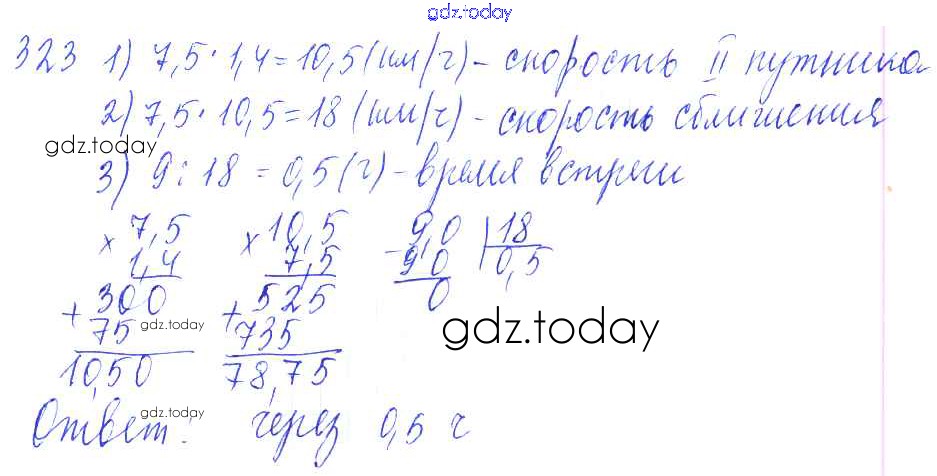 gdz.today
323 1) 7,5 · 1,4 = 10,5 (км/ч) - скорость II путника
2) 7,5 · 10,5 = 18 (км/ч) - скорость сближения
gdz.today
3) 9 : 18 = 0,5 (ч) - время встречи
× 7,5 × 10,5 9,0 | 18
1,4 7,5 - 9 0 0,5
+ 300 + 525 0
75 gdz.today 735 gdz.today
10,50 78,75
gdz.today
Ответ: через 0,5 ч
gdz.today